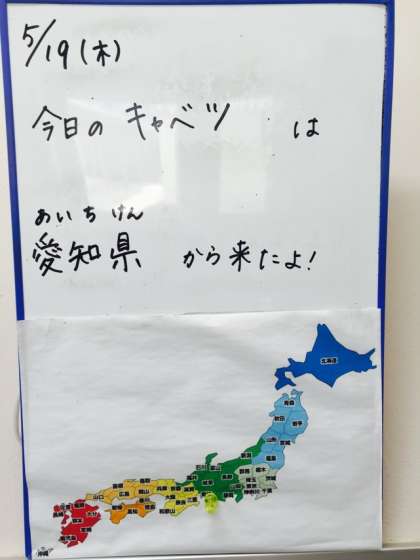 5/19(木)
今日の キャベツ は
あいちけん
愛知県 から来たよ!
北海道
青森
秋田 岩手
山形 宮城
福島
新潟
石川 富山
群馬 栃木
長野
茨城
埼玉
神奈川 千葉
岐阜
静岡
福井
兵庫 京都
大阪
和歌山
鳥取
島根 岡山
広島
山口
香川
愛媛 徳島
高知
福岡
佐賀
長崎 大分
熊本
宮崎
鹿児島
沖縄